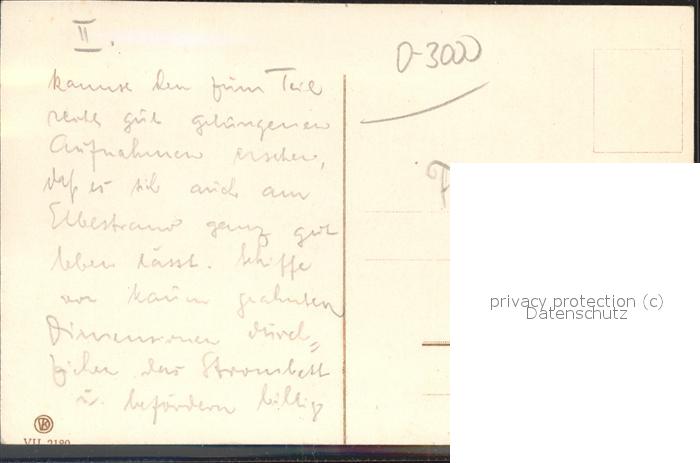 II.
0-3000
kannst Du zum Teil
recht gut gelungenen
Aufnahmen ersehen,
daß es sich auch am
Elbestrand ganz gut
leben lässt. Schiffe
von kaum geahnten
Dimensionen durch=
ziehen das Strombett
u. befördern billig
privacy protection (c)
Datenschutz
VII 2180